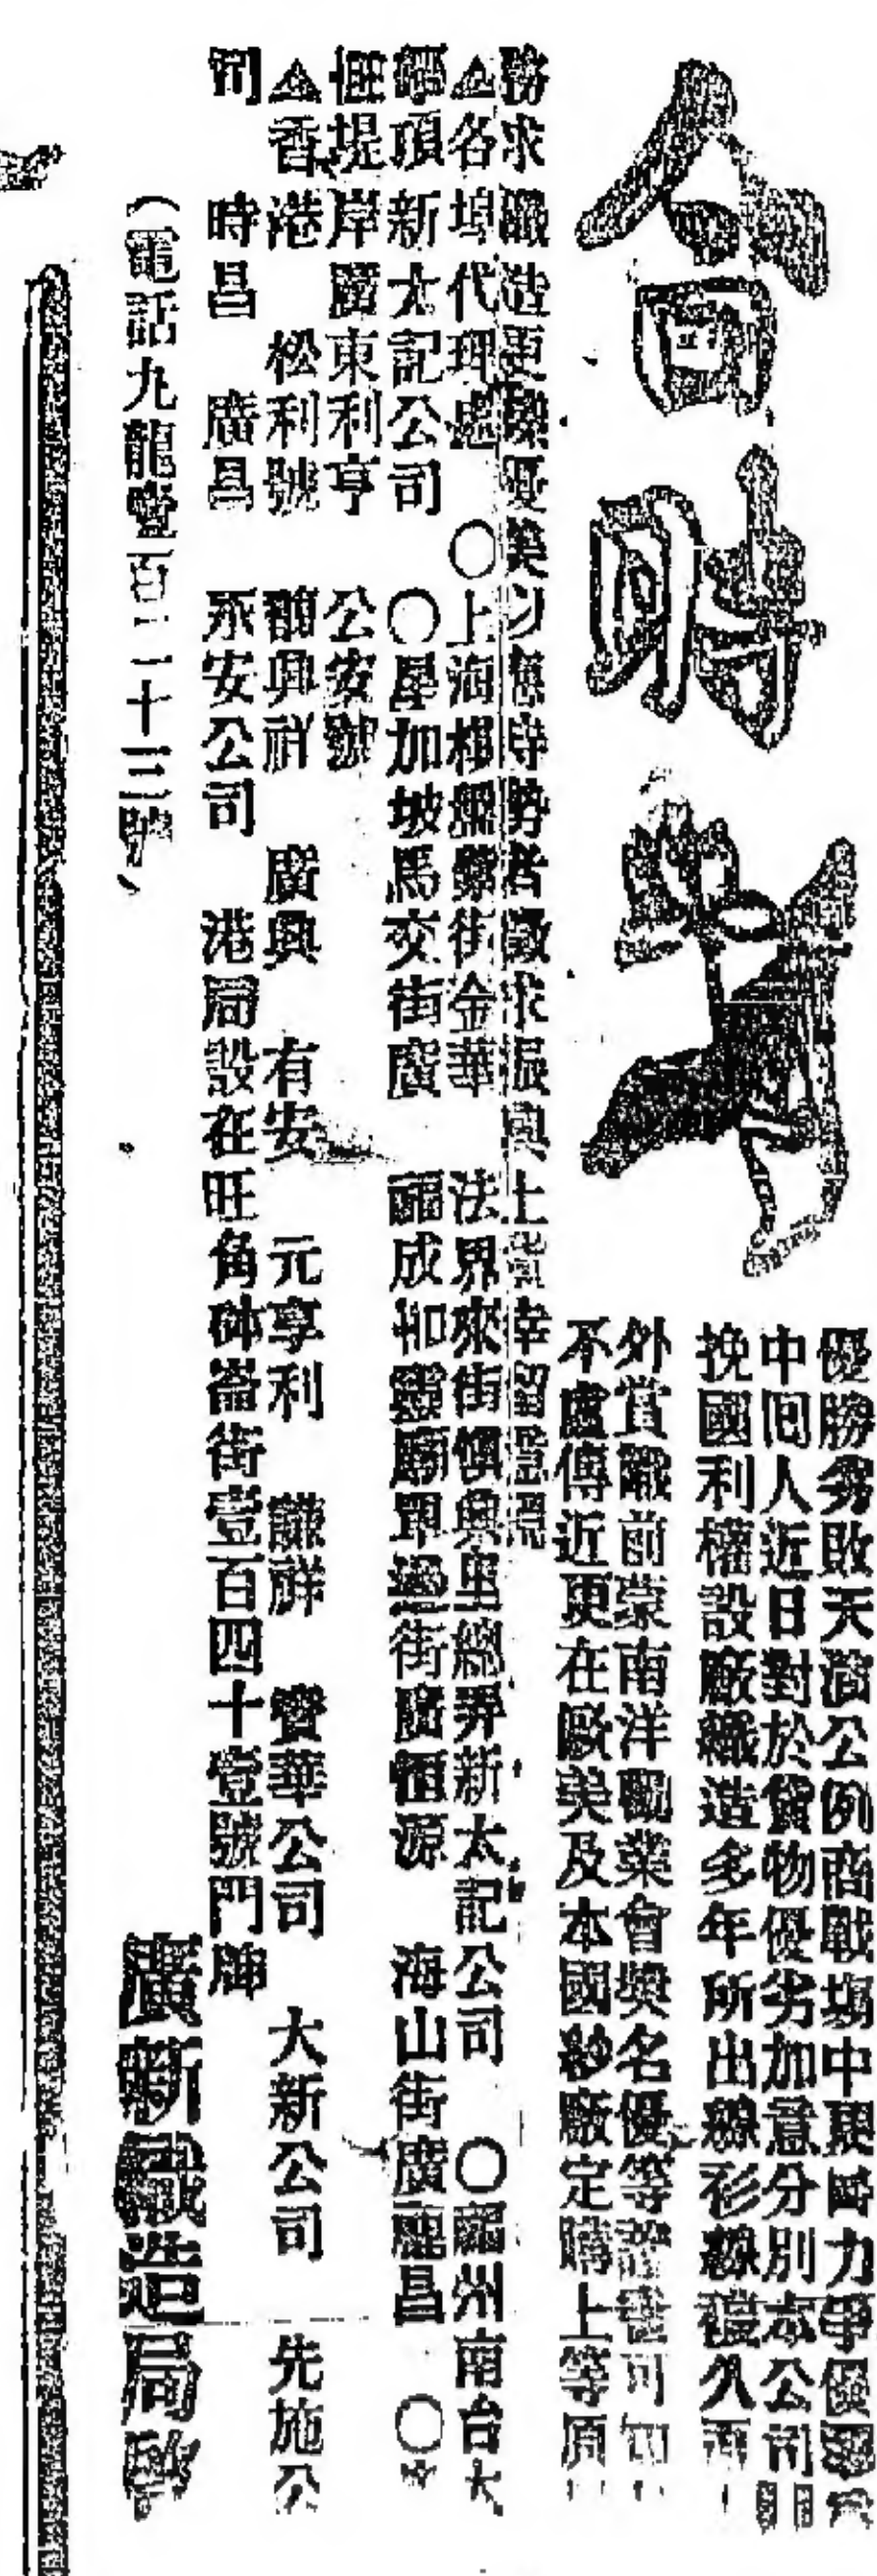 合時
優勝劣敗天演公例商戰塲中更爲力爭優
中囘人近日對於貨物優劣加意分別本公司
挽國利權設廠織造多年所出線衫線襪久
外賞職前蒙南洋勸業會奬名優等證書可知
不處傳近更在歐美及本國紗廠定購上等原
務求織造更優美以應時勢者徵求振興土貨幸留意
▲各埠代理處 〇上海 街金華 法界來街慎興里總弄新太記公司 〇福州南台大
嶺頂新太記公司 〇星加坡馬交街廣 福成和 單邊街廣恒源 海山街廣 昌 〇
堤岸廣東利亨 公安號
▲香港 松利號 興祥 廣興 有安 元亨利 謙祥 寶華公司 大新公司 先施公
司 時昌 廣昌 永安公司 港局設在旺角砵崙街壹百四十壹號門牌
(電話九龍壹百二十三號)
廣新織造局啓